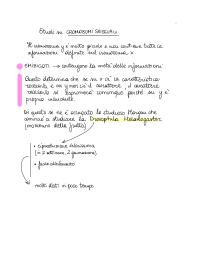 Studi sui CROMOSOMI SESSUALI
Il cromosoma y è molto piccolo e non contiene tutte le
informazioni definite sul cromosoma x
EMIZIGOTI → contengono la metà delle informazioni
Questo determina che se in x c'è la caratteristica
recessiva e in y non c'è il carattere, il carattere
recessivo si esprimerà comunque perché su y è
proprio
Di questo se ne è occupato lo studioso Morgan che
cominciò a studiare la Drosophila Melanogaster
(moscerino della frutta)
• riproduzione velocissima
(in 2 settimane, 2 generazioni)
• facile allevamento
molti dati in poco tempo